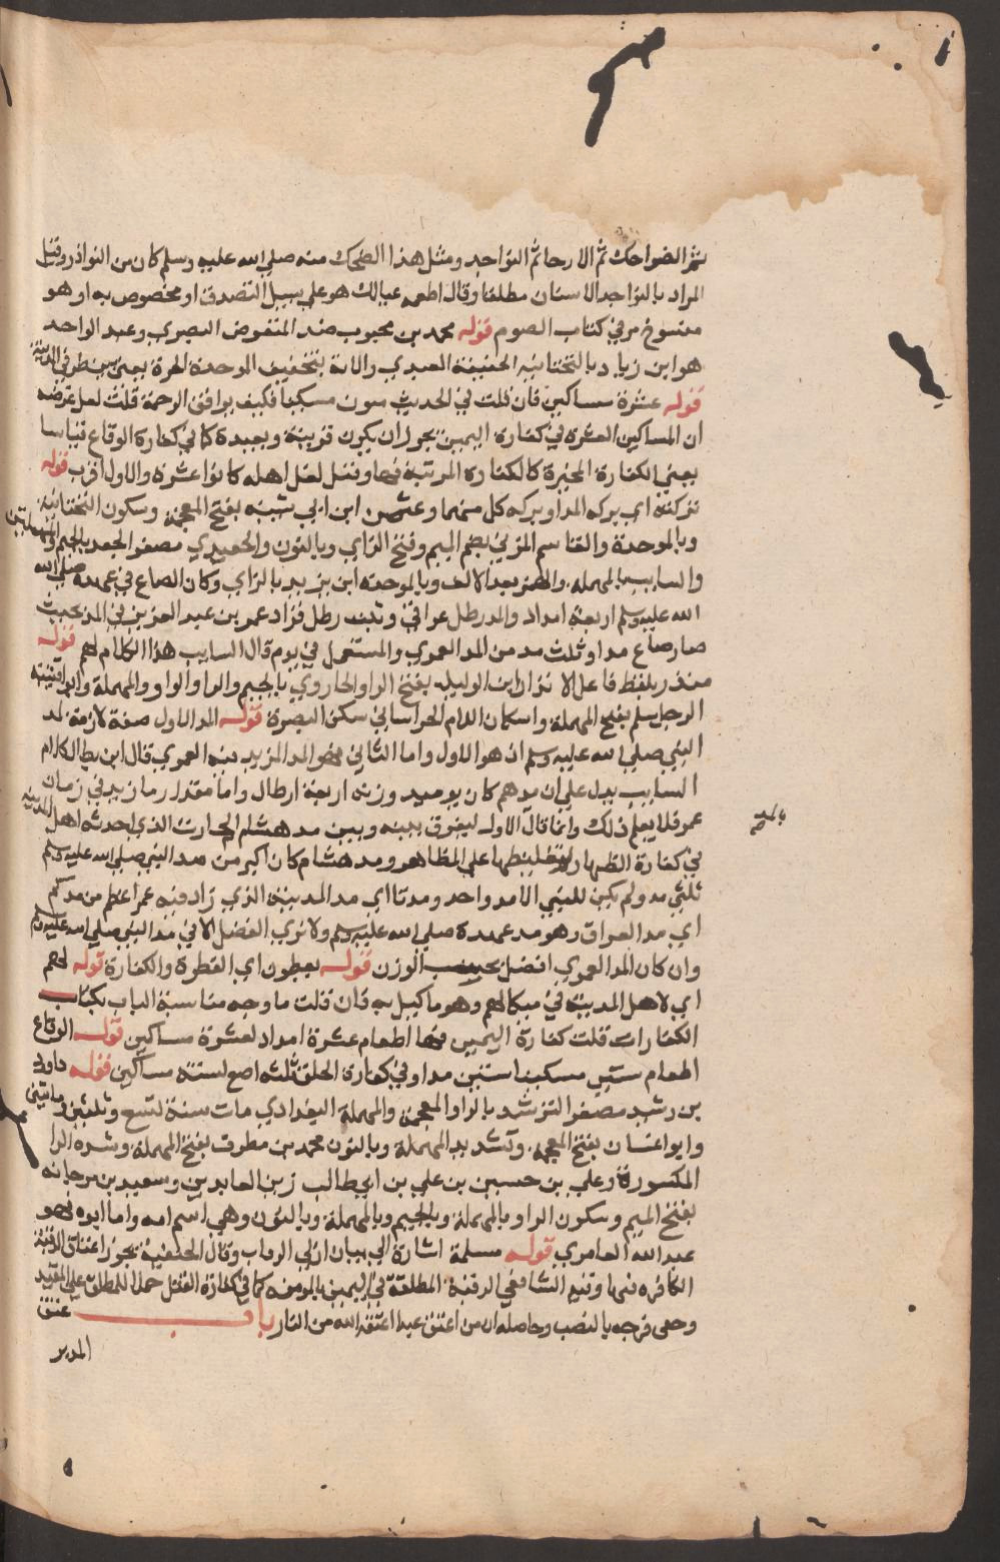 ثم الضواحك ثم الارحا ثم النواجد ومثل هذا الضحك منه صلى الله عليه وسلم كان من النوادر وقيل
المراد بالنواجد الاسنان مطلقا وقال اطعمه عيالك هو على سبيل التصدق او مخصوص به او هو
منسوخ مر في كتاب الصوم قوله محمد بن محبوب ضد المبغوض البصري وعبد الواحد
هو ابن زياد بالتحتانيه الخفيفة العبدي واللابة بتخفيف الموحدة الحرة يعني بين طرفي المدينة
قوله عشرة مساكين فان قلت في الحديث ستون مسكينا فكيف يوافق الترجمة قلت لعل غرضه
ان المساكين العشرة في كفارة اليمين يجوز ان يكون قريبة وبعيدة كما في كفارة الوقاع قياسا
يعني الكفارة المخيرة كالكفارة المرتبة فيها وقيل لعل اهله كانوا عشرة والاول اقرب قوله
بركته اي بركه المد او بركه كل منهما و ابن ابي شيبه بفتح المعجمة وسكون التحتانية
وبالموحدة والقاسم المزني بضم الميم وفتح الزاي وبالنون والجعيد مصغر الجعد بالجيم والمهملتين
والسايب بالمهمله والهمز بعد الالف وبالموحده ابن يزيد بالزاي وكان الصاع في عهده صلى الله
الله عليه وسلم اربعة امداد والمد رطل عراقي وثلث رطل فزاد عمر بن عبد العزيز في المد بحيث
صار صاع مدا وثلث مد من المد العمري والمستعمل في يوم قال السايب هذا الكلام لهم قوله
منذر بلفظ فاعل الانذار ابن الوليد بفتح الواو الجارودي بالجيم والراو الواو والمهملة وابو قتيبه
الرجل سلم بفتح المهملة واسكان اللام الخراساني سكن البصرة قوله المد الاول صفة لازمة لمد
النبي صلى الله عليه وسلم اذ هو الاول واما الثاني فهو المد المزيد فيه العمري قال ابن بطال كلام
السايب يدل على ان مدهم كان يوميذ وزنه اربعة ارطال واما مقدار ما زيد في زمان
عمر فلا يعلم ذلك وانما قال الاول ليفرق بينه وبين مد هشام الحارث الذي احدثه اهل المدينة
في كفارة الظهار لتغليظها على المظاهر ومد هشام كان اكبر من مد النبي صلى الله عليه وسلم
ثلثي مد ولم يكن للنبي الا مد واحد ومدنا اي مد المدينة الذي زاد فيه عمر اعظم من مدكم
اي مد العراق وهو مد عهده صلى الله عليه وسلم ولا نرى الفضل الا في مد النبي صلى الله عليه وسلم
وان كان المد العمري افضل بحسب الوزن قوله يعطون اي الفطرة والكفارة قوله لهم
اي لاهل المدينة في ميكالهم وهو ما يكيل به فان قلت ما وجه مناسبة الباب بكتاب
الكفارات قلت كفارة اليمين فيها اطعام عشرة امداد لعشرة مساكين قوله الوقاع
اطعام ستين مسكينا ستين مدا وفي كفارة الحلق ثلثه اصع لستته مساكين قوله داود
بن رشيد مصغر الرشد بالراو المعجمة والمهملة البغدادي مات سنة تسع وثلثين ومايتين
وابو غسان بفتح المعجمه وتشديد المهملة وبالنون محمد بن مطرف بفتح المهملة وشده الرا
المكسورة وعلي بن حسين بن علي بن ابي طالب زين العابدين وسعيد بن مرجانه
بفتح الميم وسكون الراو بالمهملة وبالجيم وبالمهملة وبالنون وهي اسم امه واما ابوه فهو
عبد الله العامري قوله مسلمة اشارة الى بيان ازكى الرقاب وقال الحنفية يجوز اعتاق الرقبة
الكافره فيها وتبع الشافعي الرقبة المطلقة في اليمين بالمومنه كما في كفارة القتل حملا للمطلق على المقيد
وحتى فرجه بالنصب وحاصله ان من اعتق عبدا اعتقه الله من النار باب عتق
المدبر